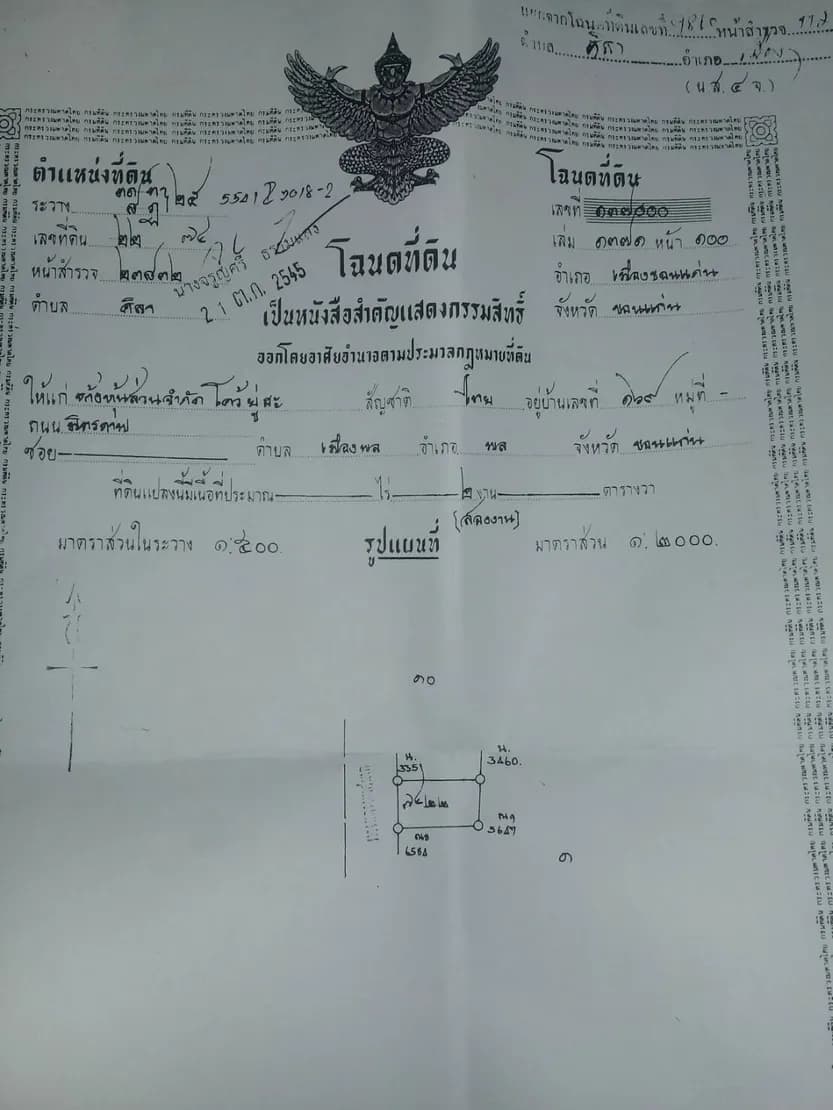 แยกจากโฉนดที่ดินเลขที่ หน้าสำรวจ
ตำบล ศิลา อำเภอ เมือง
(น.ส.๔ จ.)
ตำแหน่งที่ดิน
ระวาง 5541 I 9018-2
เลขที่ดิน ๒๒ ๗๔
หน้าสำรวจ ๒๓๙๓๒
ตำบล ศิลา
นางจรูญศรี
21 ต.ค. 2545
โฉนดที่ดิน
เลขที่ ๑๓๗๑๐๐
เล่ม ๑๓๗๑ หน้า ๑๐๐
อำเภอ เมืองขอนแก่น
จังหวัด ขอนแก่น
โฉนดที่ดิน
เป็นหนังสือสำคัญแสดงกรรมสิทธิ์
ออกโดยอาศัยอำนาจตามประมวลกฎหมายที่ดิน
ให้แก่ ห้างหุ้นส่วนจำกัด โค้วยู่ฮะ สัญชาติ ไทย อยู่บ้านเลขที่ ๑๖๙ หมู่ที่ -
ถนน มิตรภาพ
ซอย ตำบล เมืองพล อำเภอ พล จังหวัด ขอนแก่น
ที่ดินแปลงนี้มีเนื้อที่ประมาณ ไร่ ๒ งาน ตารางวา
(สองงาน)
มาตราส่วนในระวาง ๑:๕๐๐ รูปแผนที่ มาตราส่วน ๑:๒๐๐๐.
๑๐
น.
3351
น.
3460.
๗๔ ๒๒
ณ๑
3647
ณ๘
6584
๑